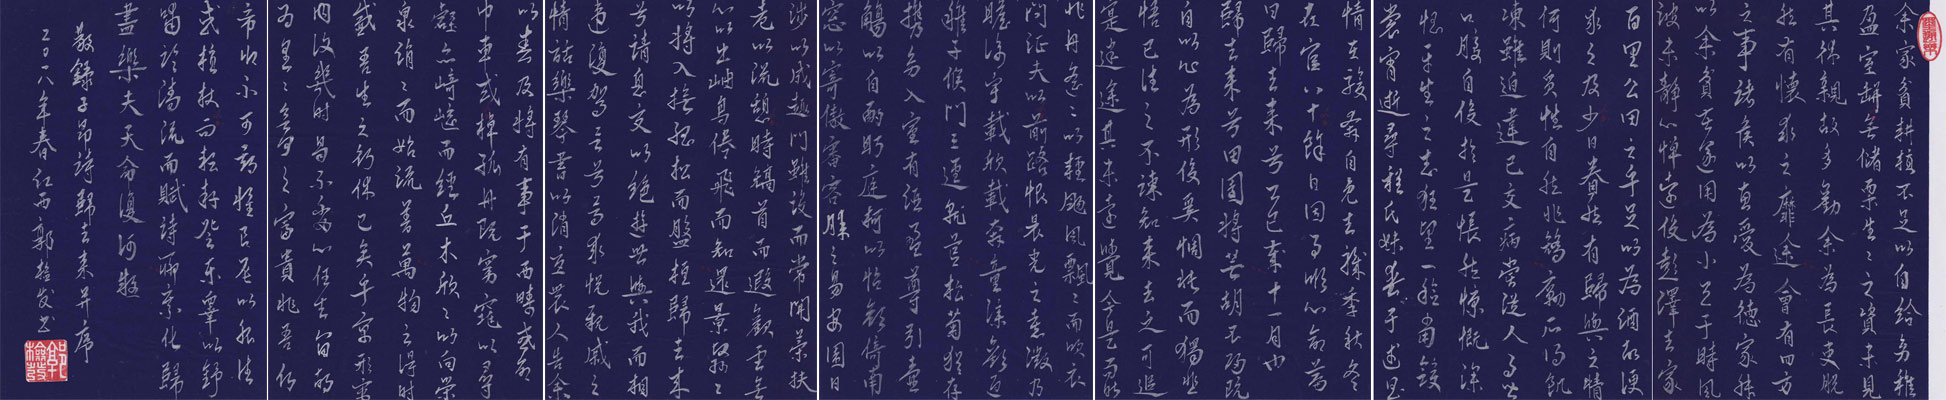 余家貧耕植不足以自給幼稚
盈室缾無儲粟生生之資未見
其術親故多勸余為長吏脫
然有懷求之靡途會有四方
之事諸侯以惠愛為德家叔
以余貧苦遂用為小邑于時風
波未靜心憚遠役彭澤去家
百里公田之利足以為酒故便
求之及少日眷然有歸與之情
何則質性自然非矯勵所得飢
凍雖切違己交病嘗從人事皆
口腹自役於是悵然慷慨深
愧平生之志猶望一稔當斂
裳宵逝尋程氏妹喪于武昌
情在駿奔自免去職秋冬
在官八十餘日因事順心命篇
曰歸去來兮乙巳歲十一月也
歸去來兮田園將蕪胡不歸既
自以心為形役奚惆悵而獨悲
悟已往之不諫知來者之可追
寔迷途其未遠覺今是而昨
非舟遙遙以輕颺風飄飄而吹衣
問征夫以前路恨晨光之熹微乃
瞻衡宇載欣載奔童僕歡迎
稚子候門三逕就荒松菊猶存
攜幼入室有酒盈尊引壺
觴以自酌眄庭柯以怡顏倚南
窓以寄傲審容膝之易安園日
涉以成趣門雖設而常關策扶
老以流憩時矯首而遐觀雲無
心以出岫鳥倦飛而知還景翳翳
以將入撫孤松而盤桓歸去來
兮請息交以絕遊世與我而相
違復駕言兮焉求悅親戚之
情話樂琴書以消憂農人告余
以春及將有事于西疇或命
巾車或棹孤舟既窈窕以尋
壑亦崎嶇而經丘木欣欣以向榮
泉涓涓而始流善萬物之得時
感吾生之行休已矣乎寓形宇
內復幾時曷不委心任去留胡
為皇皇之富貴非吾
帝鄉不可期懷良辰以孤往
或植杖而耘耔登東皋以舒
嘯臨清流而賦詩聊乘化歸
盡樂夫天命復何疑
敬錄子昂詩歸去來并序
二〇一八年春江西郭檢發書
郭檢發印